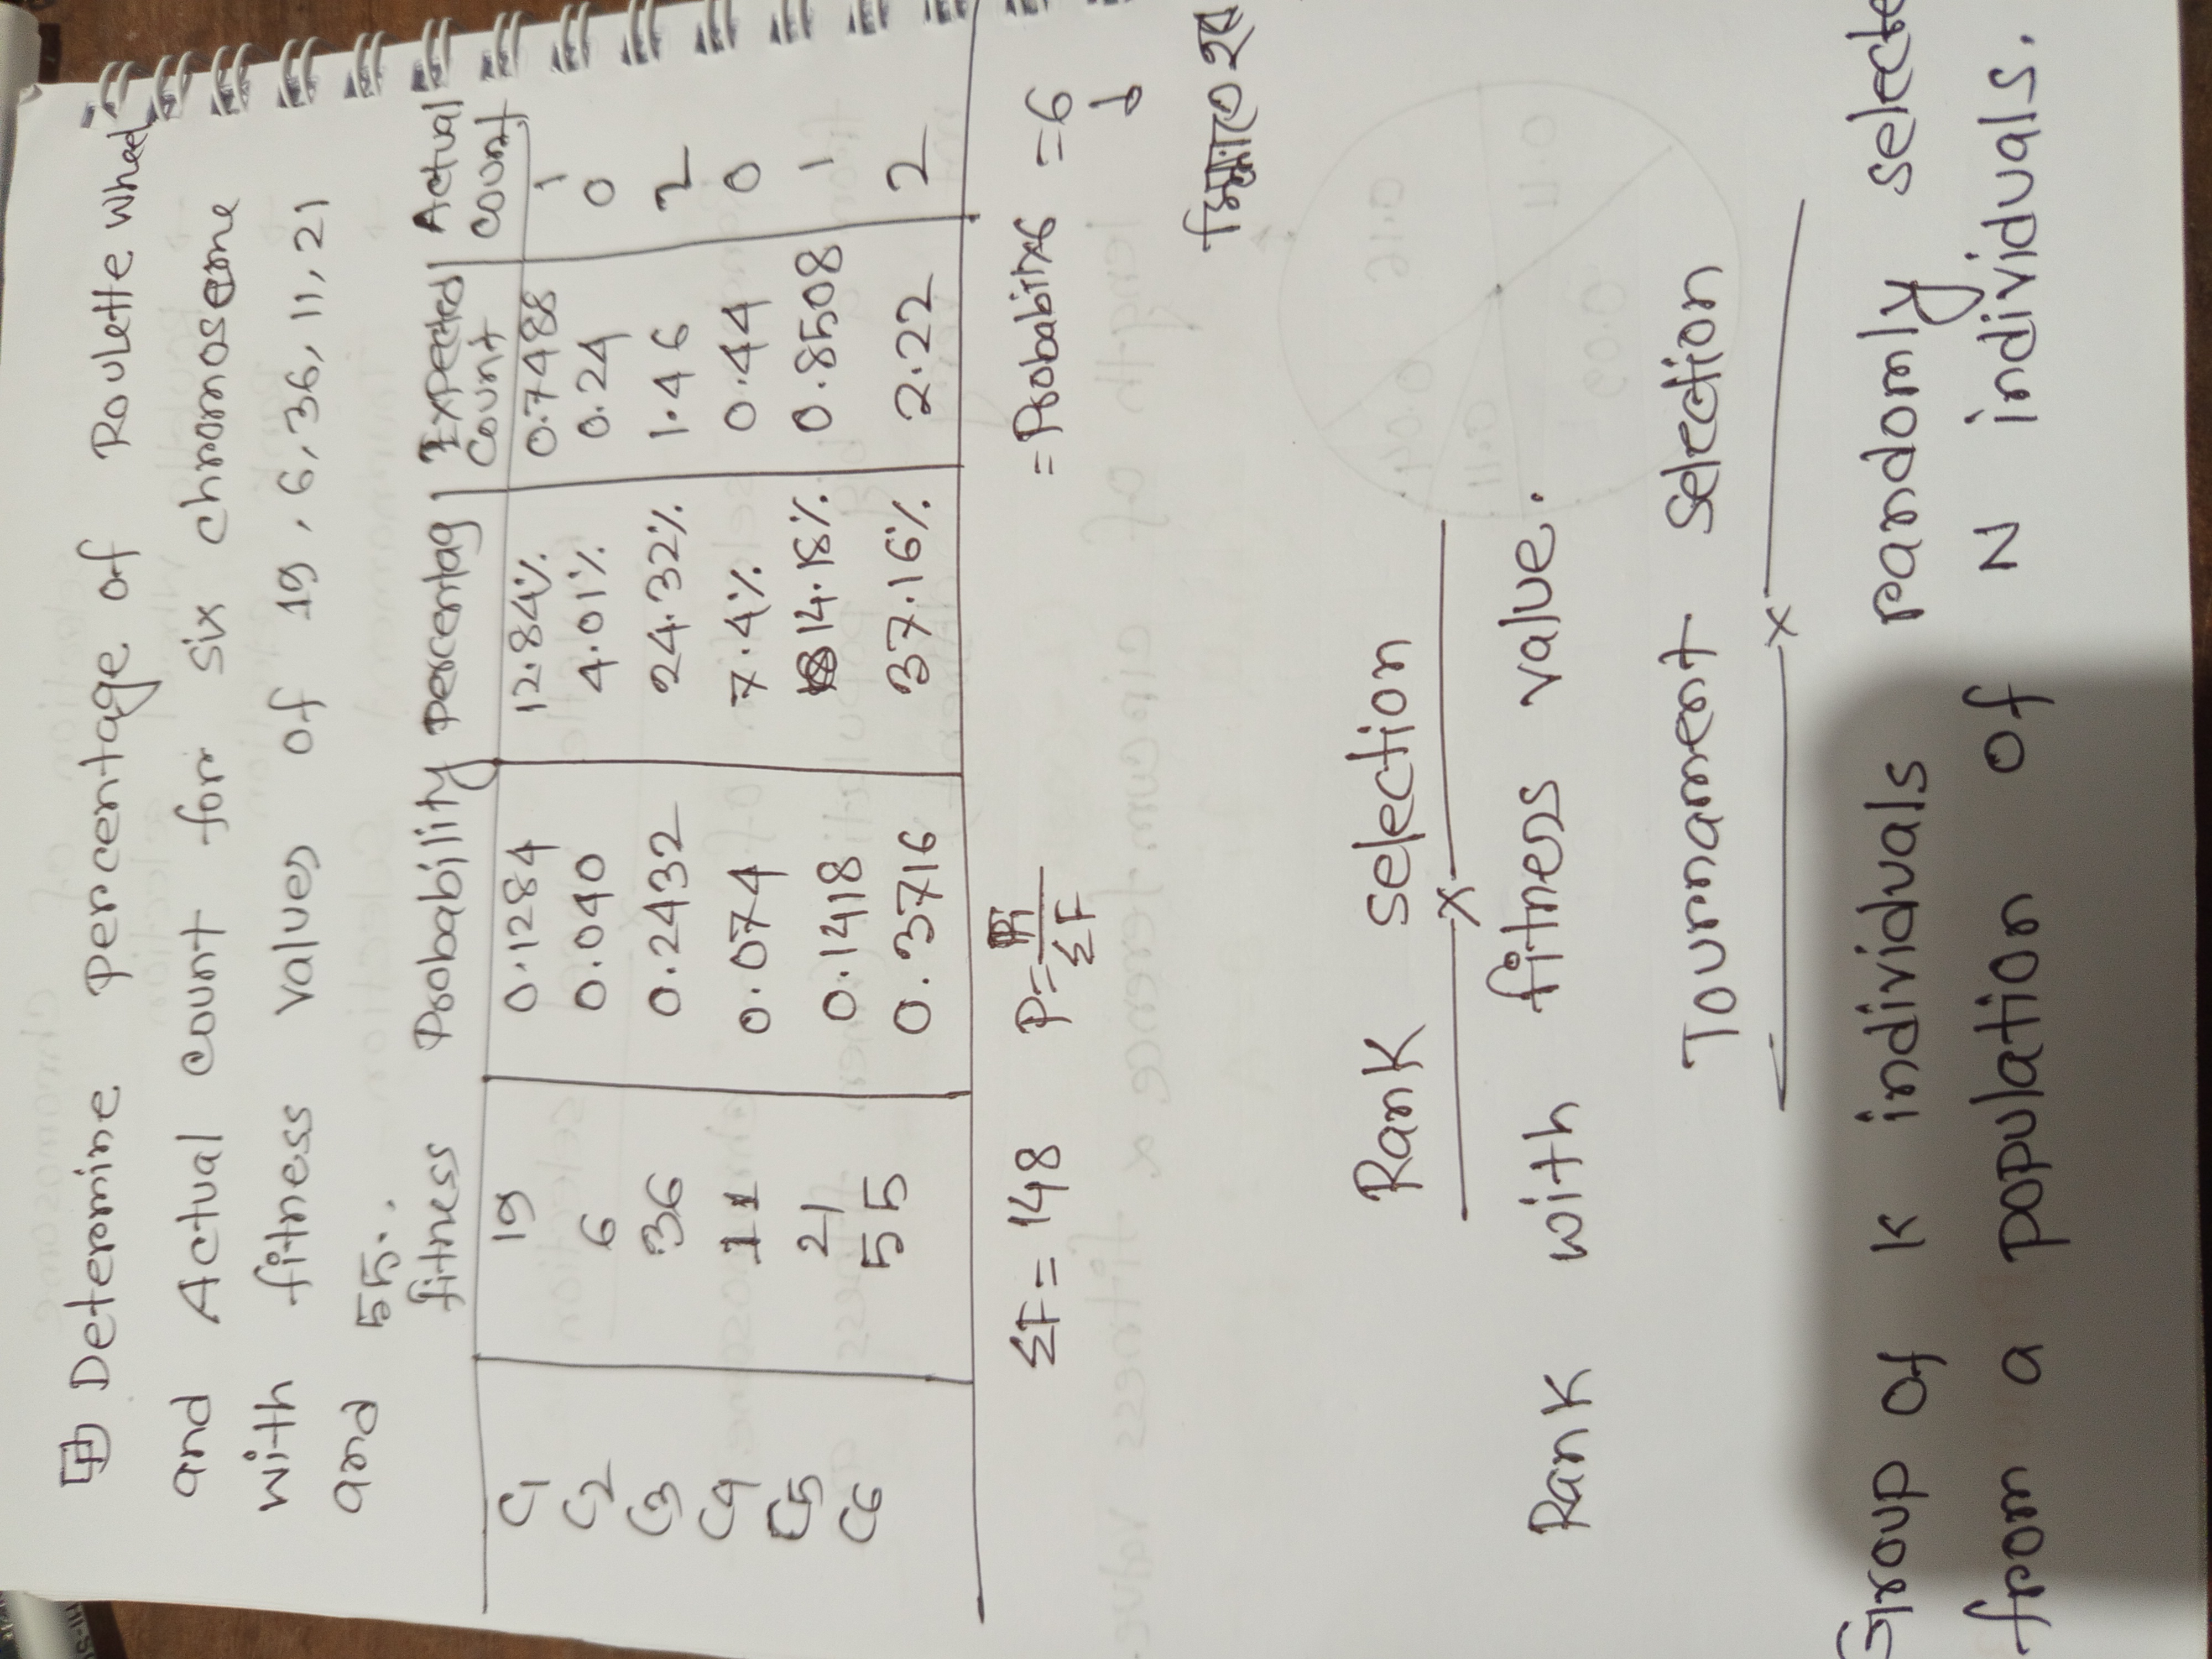 Determine percentage of Roulette wheel
and Actual count for six chromoseme
with fitness values of 19, 6, 36, 11, 21
and 55..
fitness Probability percentag Expected count Actual count
C1 19 0.1284 12.84% 0.7488 1
C2 6 0.040 4.01% 0.24 0
C3 36 0.2432 24.32% 1.46 2
C4 11 0.074 7.4% 0.44 0
C5 21 0.1418 14.18% 0.8508 1
C6 55 0.3716 37.16% 2.22 2
ΣF = 148 P = Fi / ΣF = Probabit×6 = 6
হবে
Rank selection
x
Rank with fitness value.
Tournament selection
x
Group of K individuals randomly selecte
from a population of N individuals.